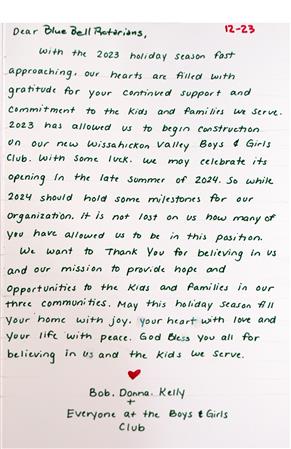 12-23
Dear Blue Bell Rotarians,
With the 2023 holiday season fast
approaching, our hearts are filled with
gratitude for your continued support and
commitment to the kids and families we serve.
2023 has allowed us to begin construction
on our new Wissahickon Valley Boys & Girls
Club. With some luck, we may celebrate its
opening in the late summer of 2024. So while
2024 should hold some milestones for our
organization, it is not lost on us how many of
you have allowed us to be in this position.
We want to Thank You for believing in us
and our mission to provide hope and
opportunities to the kids and families in our
three communities. May this holiday season fill
your home with joy, your heart with love and
your life with peace. God Bless you all for
believing in us and the kids we serve.
Bob, Donna, Kelly
+
Everyone at the Boys & Girls
Club